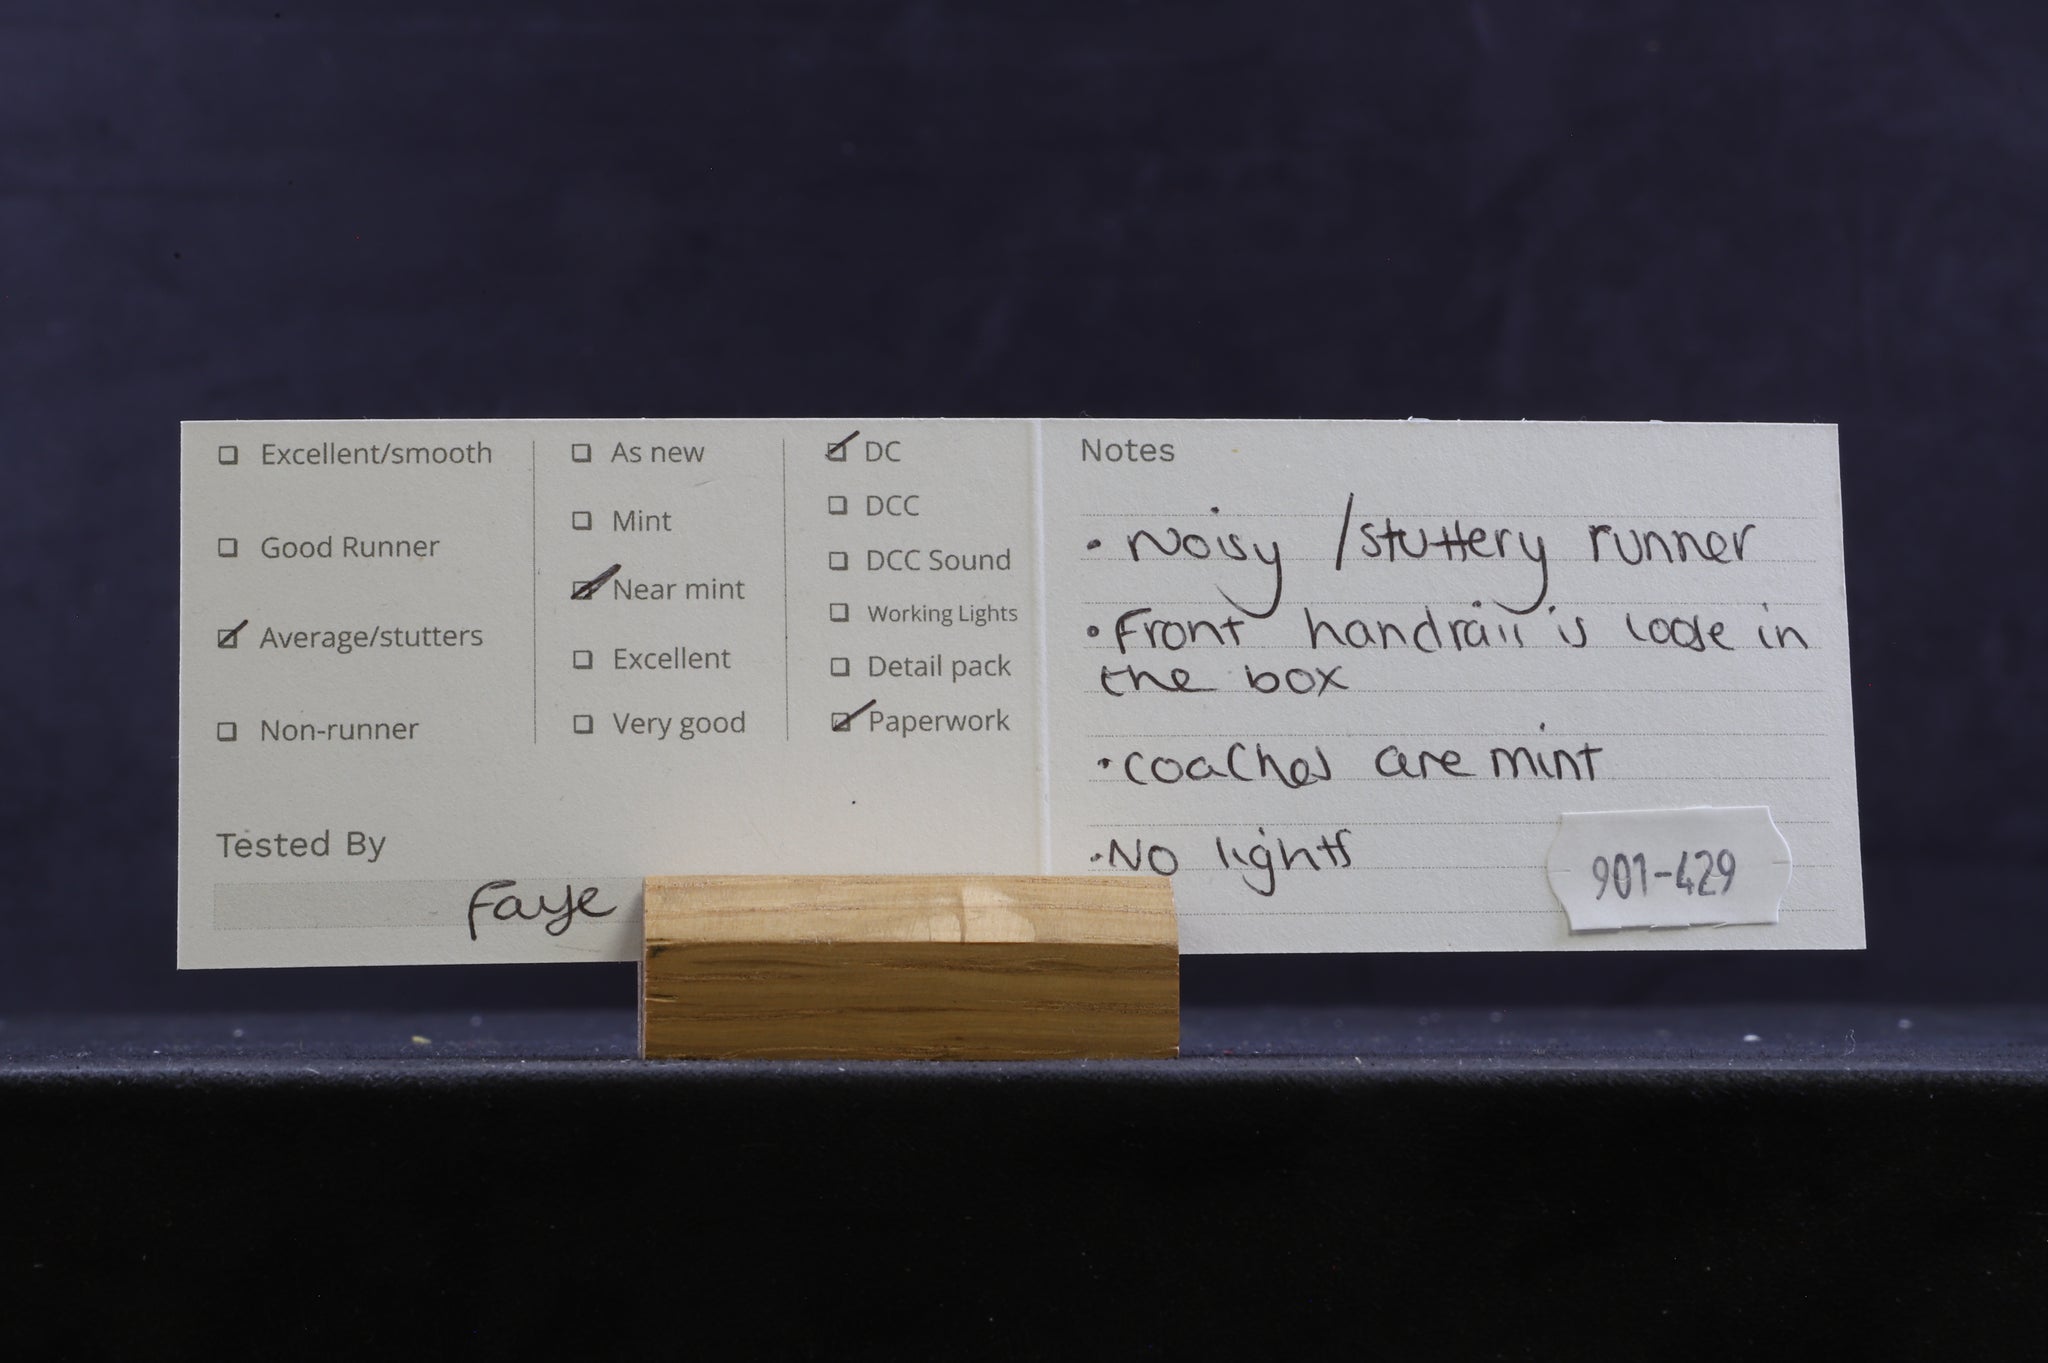 Excellent/smooth
Good Runner
Average/stutters
Non-runner
As new
Mint
Near mint
Excellent
Very good
DC
DCC
DCC Sound
Working Lights
Detail pack
Paperwork
Tested By
Faye
Notes
• Noisy /stuttery runner
• Front handrail is loose in
the box
• coaches are mint
• No lights
901-429